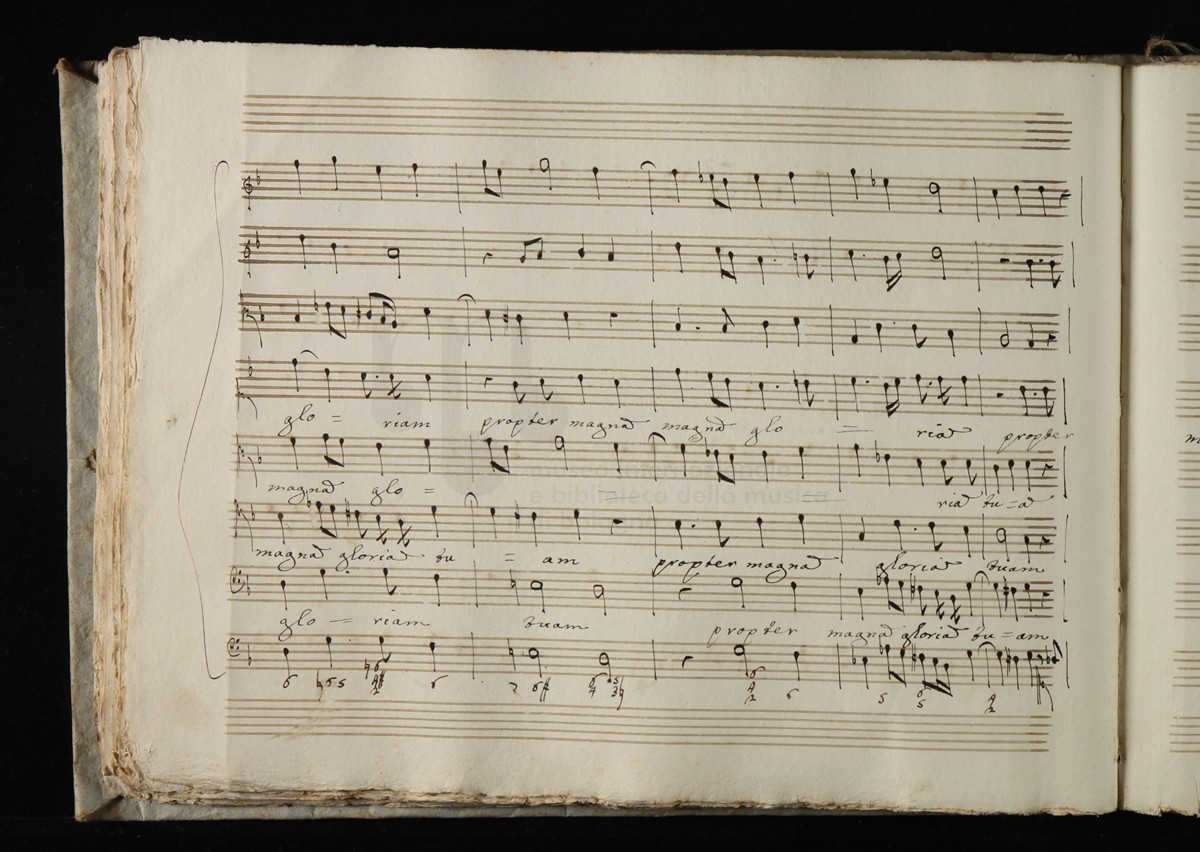 glo = riam propter magnā magnā glo = riā propter
magnā glo = riā tu = ā
magnā gloriā tu = am propter magnā gloriā tuam
glo = riam tuam propter magnā gloriā tu = am
museo internazionale
e biblioteca della musica